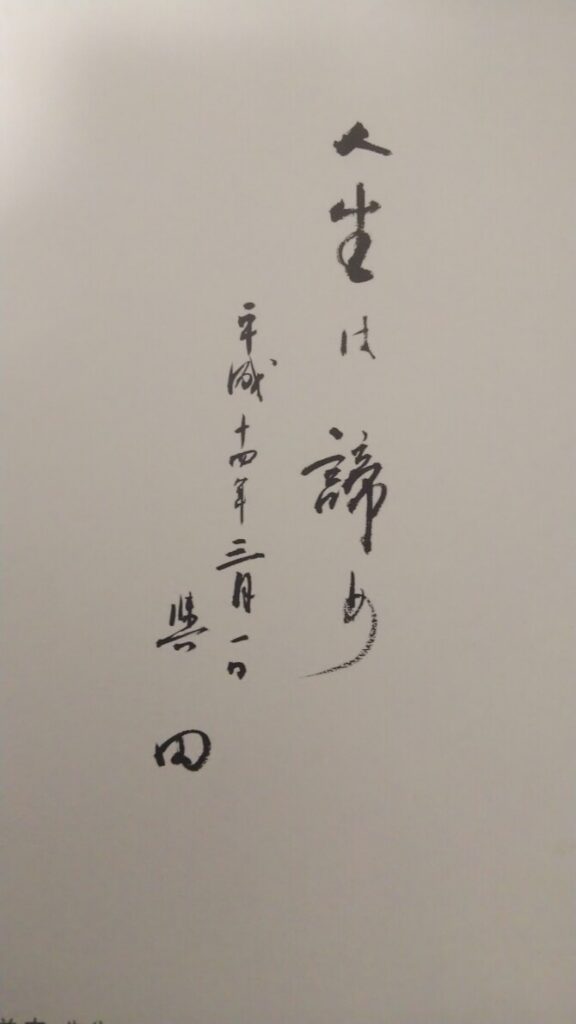 人生は諦め
平成十四年三月一日